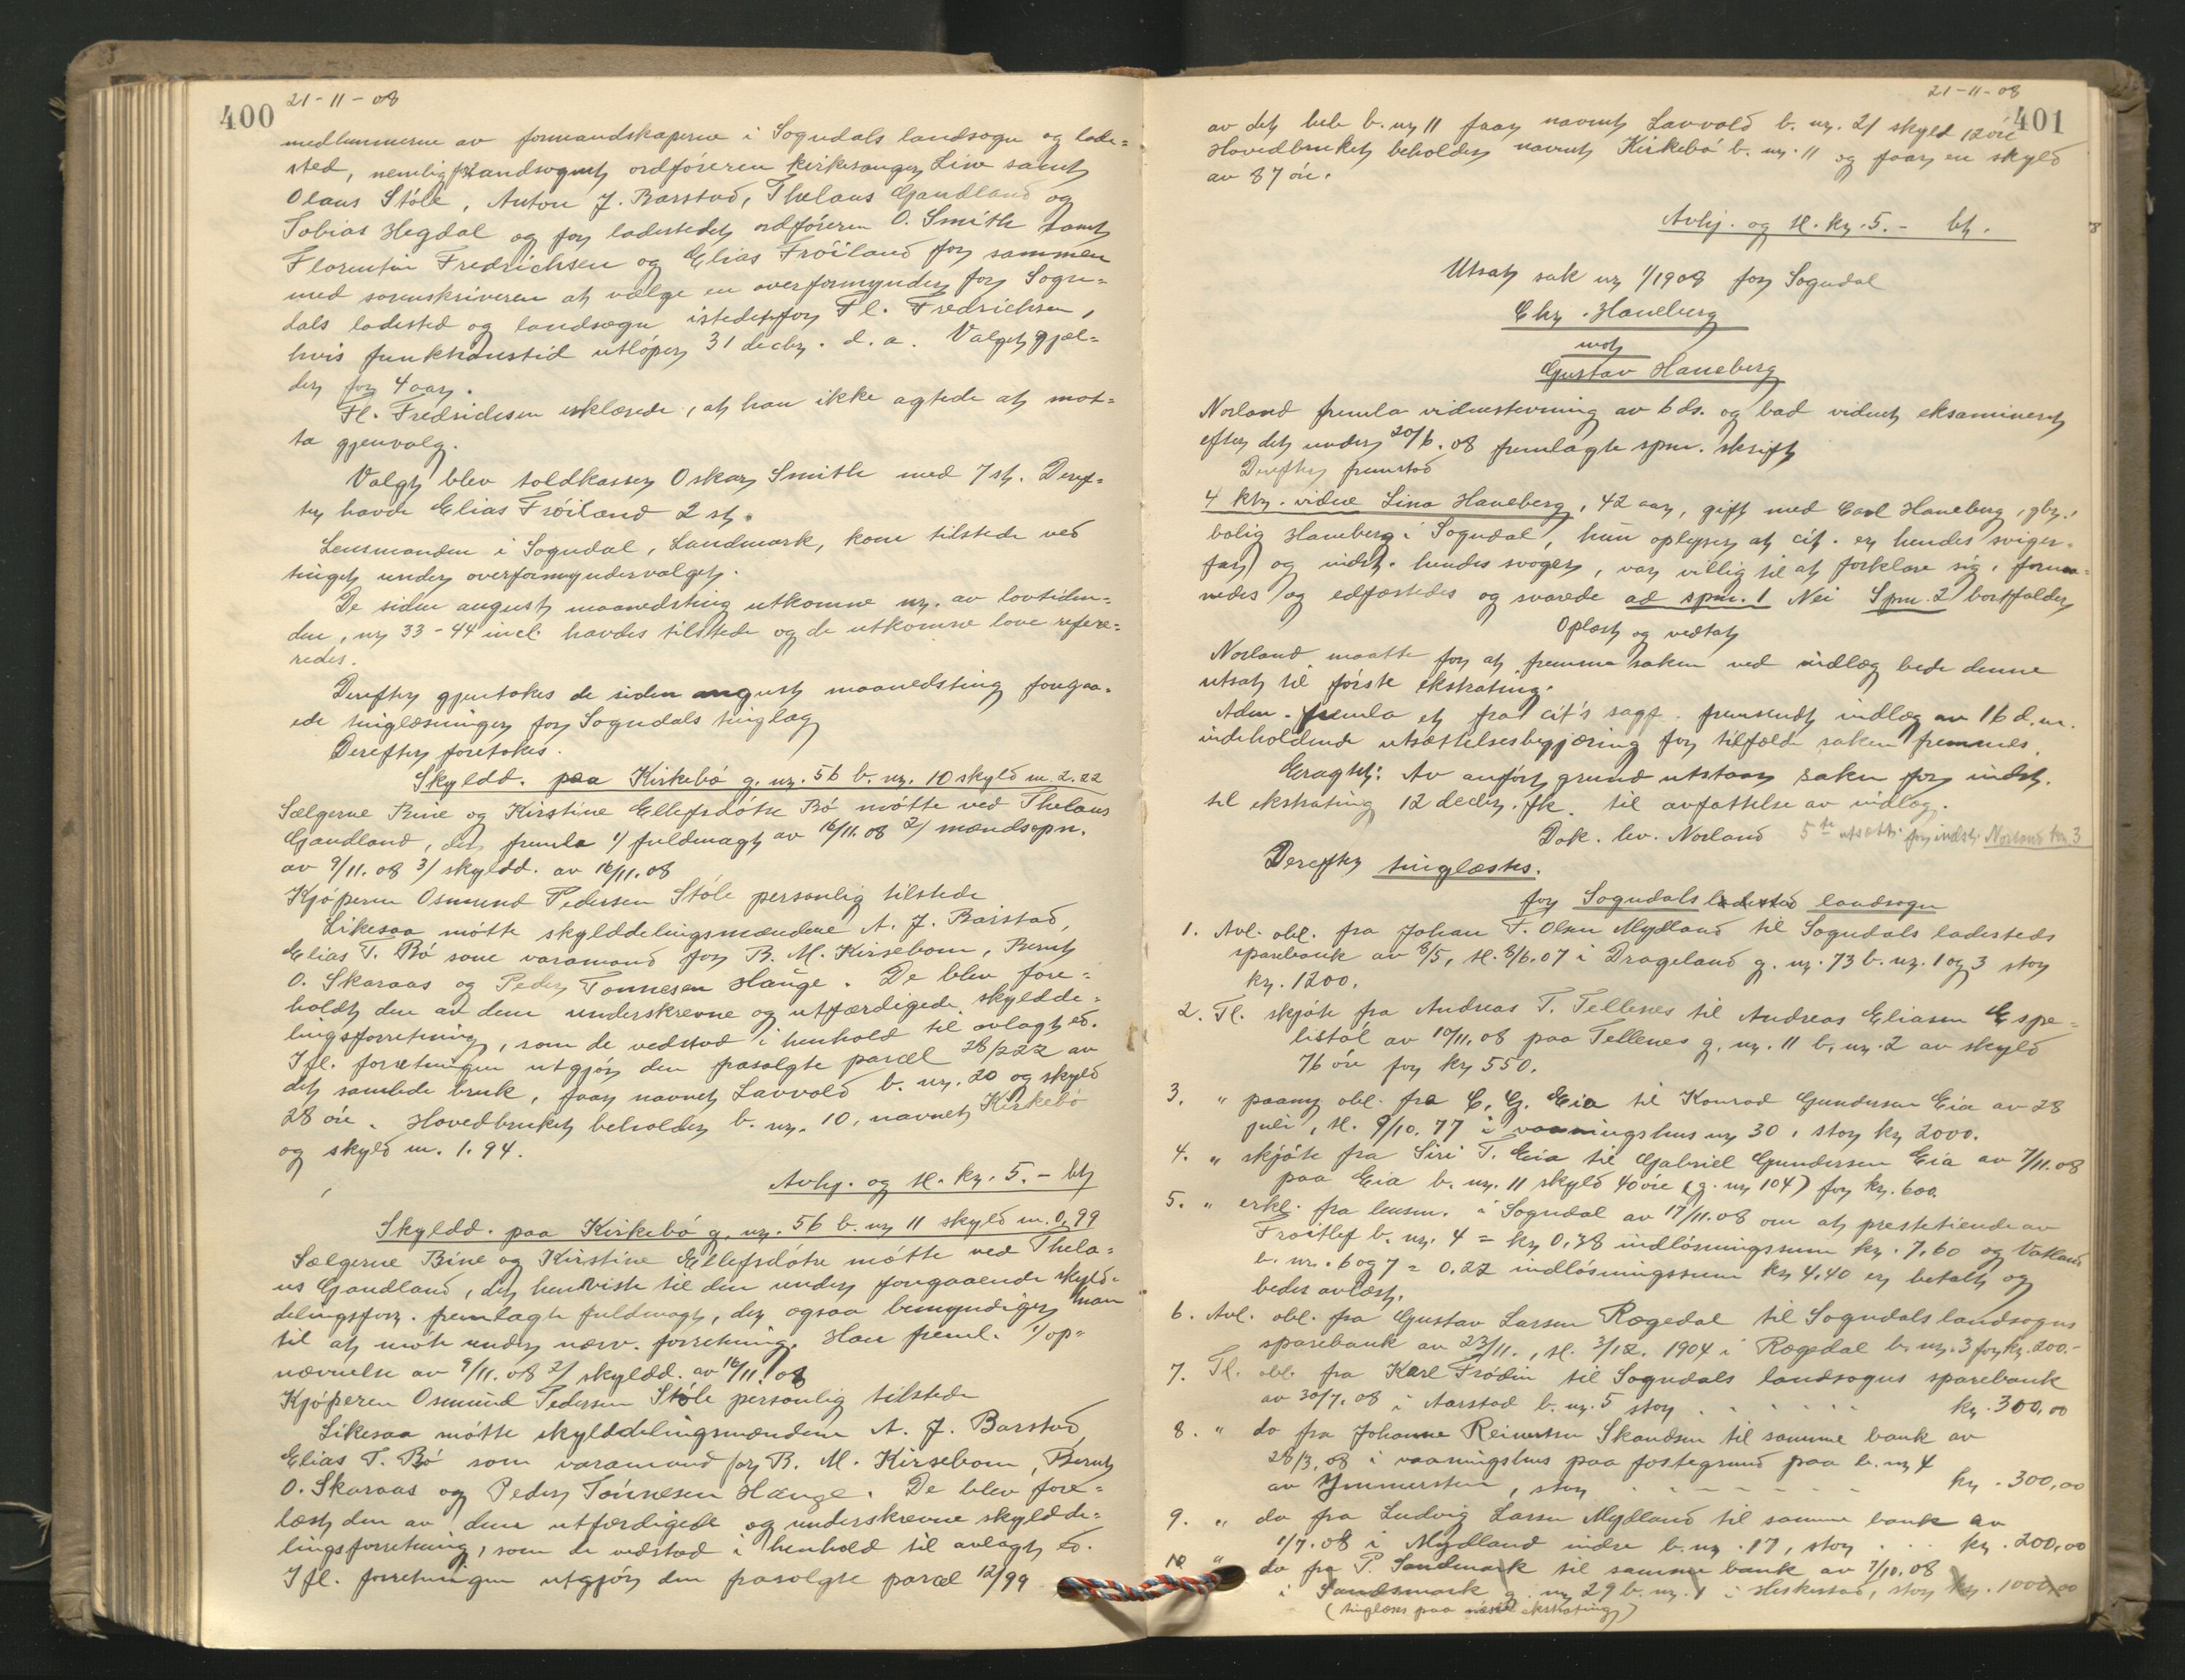 400
21-11-08
medlemmerne av formandskaperne i Sogndals landsogn og lade=
sted, nemlig for landsognet ordføreren kirkesanger Liw samt
Olaus Støle, Anton J. Barstad, Thelaus Gandland og
Tobias Hegdal og for ladestedet ordføreren O. Smith samt
Florentin Fredrichsen og Elias Frøiland for sammen
med sorenskriveren at vælge en overformynder for Sogn=
dals ladested og landsogn istedetfor Fl. Fredrichsen,
hvis funktionstid utløper 31 decbr. d. a. Valget gjæl=
der for 4 aar.
Fl. Fredrichsen erklærede, at han ikke agtede at mot=
ta gjenvalg.
Valgt blev toldkasser Oskar Smith med 7 st. Deref=
ter havde Elias Frøiland 2 st.
Lensmanden i Sogndal, Landmark, kom tilstede ved
tinget under overformyndervalget.
De siden august maanedsting utkomne nr. av lovtiden=
den, nr 33-44 incl. havdes tilstede og de utkomne love refere=
redes.
Derefter gjentokes de siden august maanedsting forgaa=
ede tinglæsninger for Sogndals tinglag
Derefter foretokes.
Skyldd. paa Kirkebø g. nr. 56 b. nr. 10 skyld m. 2.22
Sælgerne Bine og Kirstine Ellefsdøtre Bø møtte ved Thelaus
Gandland, der fremla 1/ fuldmagt av 16/11.08 2/ mændsopn.
av 9/11.08 3/ skyldd. av 16/11.08
Kjøperen Osmund Pedersen Støle personlig tilstede
Likesaa møtte skylddelingsmændene A. J. Barstad,
Elias T. Bø som varamand for B. M. Kirsebom, Bernt
O. Skaraas og Peder Tønnesen Hauge. De blev fore=
holdt den av dem underskrevne og utfærdigede skyldde=
lingsforretning, som de vedstod i henhold til avlagt ed.
Ifl. forretningen utgjør den frasolgte parcel 28/222 av
det samlede bruk, faar navnet Lavvold b. nr. 20 og skyld
28 øre. Hovedbruket beholder b. nr. 10, navnet Kirkebø
og skyld m. 1.94.
Avhj. og tl. kr. 5.- bt
Skyldd. paa Kirkebø g. nr. 56 b. nr 11 skyld m. 0,99
Sælgerne Bine og Kirstine Ellefsdøtre møtte ved Thela=
us Gandland, der henviste til den under forgaaende skyld=
delingsforr. fremlagte fuldmagt, der ogsaa bemyndiger ham
til at møte under nærv. forretning. Han freml. 1/ op=
nævnelse av 9/11.08 2/ skyldd. av 16/11.08
Kjøperen Osmund Pedersen Støle personlig tilstede
Likesaa møtte skylddelingsmændene A. J. Barstad
Elias T. Bø som varamand for B. M. Kirsebom, Bernt
O. Skaraas og Peder Tønnesen Hauge. De blev fore=
læst den av dem utfærdigede og underskrevne skyldde=
lingsforretning, som de vedstod i henhold til avlagt ed.
Ifl. forretningen utgjør den frasolgte parcel 12/99
21-11-08
401
av det hele b. nr 11 faar navnet Lavvold b. nr. 21 skyld 12 øre
Hovedbruket beholder navnet Kirkebø b. nr. 11 og faar en skyld
av 87 øre.
Avhj. og tl. kr. 5.- bt.
Utsat sak nr 1/1908 for Sogndal
Chr. Haneberg
mot
Gustav Haneberg
Norland fremla vidnestevning av 6 ds. og bad vidnet eksamineret
efter det under 20/6.08 fremlagte spm. skrift
Derefter fremstod
4 ktr. vidne Lina Haneberg, 42 aar, gift med Carl Haneberg, gbr.,
bolig Haneberg i Sogndal, hun oplyser at cit. er hendes sviger=
far og indst. hendes svoger, var villig til at forklare sig, forma=
nedes og edfæstedes og svarede ad spm. 1 Nei Spm. 2 bortfalder
Oplæst og vedtat
Norland maatte for at fremme saken ved indlæg bede denne
utsat til første ekstrating.
Adm. fremla et fra cit's sagf. fremsendt indlæg av 16 d. m.
indeholdende utsættelsesbegjæring for tilfælde saken fremmes.
Eragtet: Av anført grund utstaar saken for indst.
til ekstrating 12 decbr. fk. til avfattelse av indlæg.
Dok. lev. Norland 5te utsætt. for indst. Norland kr. 3
Derefter tinglæstes.
for Sogndals ladested landsogn
1. Avl. obl. fra Johan T. Olsen Mydland til Sogndals ladesteds
sparebank av 8/5, tl. 8/6.07 i Drageland g. nr. 73 b. nr. 1 og 3 stor
kr. 1200.
2. Tl. skjøte fra Andreas T. Tellenes til Andreas Eliasen Espe=
listøl av 10/11.08 paa Tellenes g. nr. 11 b. nr. 2 av skyld
76 øre for kr 550.
3. " paany obl. fra C. G. Eia til Konrad Gundersen Eia av 28
juli, tl. 9/10.77 i vaaningshus nr 30, stor kr 2000.
4. " skjøte fra Siri T. Eia til Gabriel Gundersen Eia av 7/11.08
paa Eia b. nr. 11 skyld 40 øre (g. nr 104) for kr. 600.
5. " erkl. fra lensm. i Sogndal av 17/11.08 om at prestetiende av
Frøitlef b. nr. 4 = kr 0,38 indløsningssum kr. 7,60 og Vatland
b. nr. 6 og 7 = 0.22 indløsningssum kr 4,40 er betalt og
bedes avlæst.
6. Avl. obl. fra Gustav Larsen Rægedal til Sogndals landsogns
sparebank av 23/11., tl. 3/12. 1904 i Rægedal b. nr. 3 for kr. 200.-
7. Tl. obl. fra Karl Frødin til Sogndals landsogns sparebank
av 30/7.08 i Aarstad b. nr. 5 stor . . . . . . kr. 300,00
8. " do fra Johanne Reinertsen Skandsen til samme bank av
28/3.08 i vaaningshus paa festegrund paa b. nr 4
av Immerstein, stor - - - - - - - kr. 300,00
9. " do fra Ludvig Larsen Mydland til samme bank av
1/7.08 i Mydland indre b. nr. 17, stor . . . kr. 200,00
10 " do fra P. Sandmark til samme bank av 7/10.08
i Sandsmark g. nr 29 b. nr. 1 i Heskestad, stor kr. 1000,00
(tinglæses paa næste ekstrating)